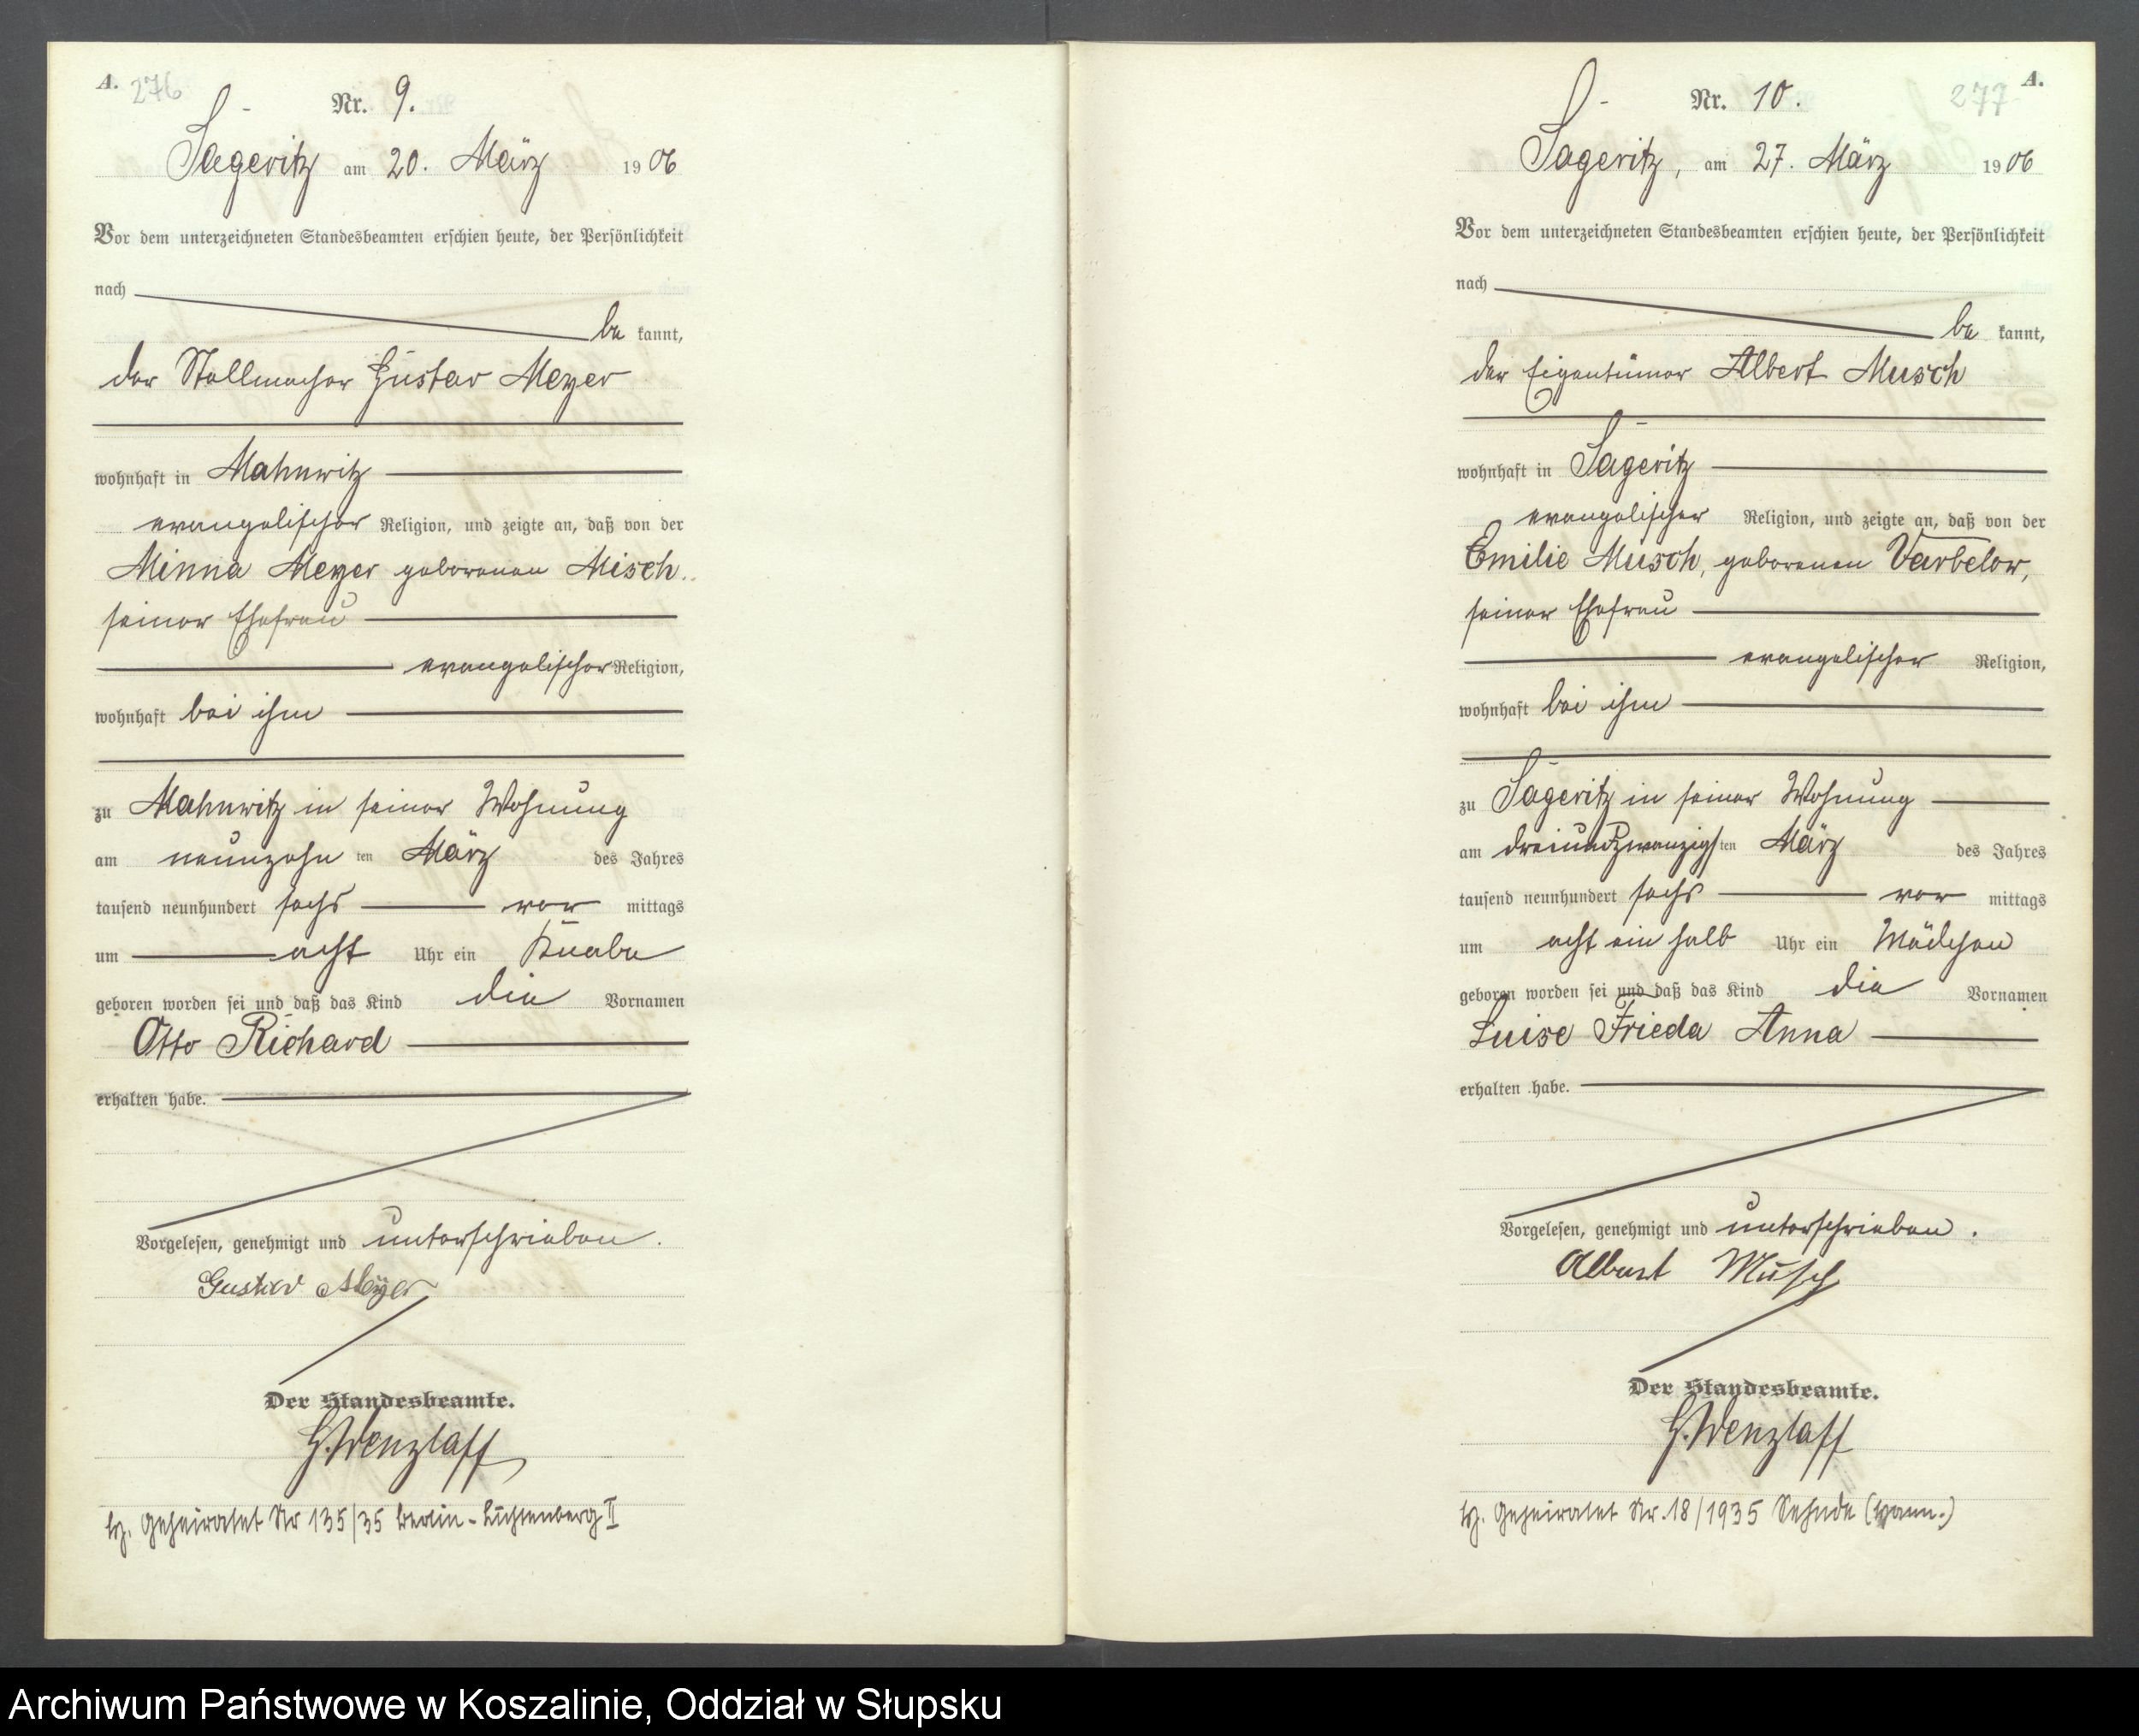 A. 276
Nr. 9.
Sägeritz am 20. März 1906
Vor dem unterzeichneten Standesbeamten erschien heute, der Persönlichkeit
nach
be kannt,
der Stellmacher Gustav Meyer
wohnhaft in Mahnwitz
evangelischer Religion, und zeigte an, daß von der
Minna Meyer geborenen Misch
seiner Ehefrau
evangelischer Religion,
wohnhaft bei ihm
zu Mahnwitz in seiner Wohnung
am neunzehn ten März des Jahres
tausend neunhundert sechs vor mittags
um acht Uhr ein Knabe
geboren worden sei und daß das Kind die Vornamen
Otto Richard
erhalten habe.
Vorgelesen, genehmigt und unterschrieben.
Gustav Meyer
Der Standesbeamte.
G. Wenzlaff
Geheiratet Nr 135/35 Berlin-Lichtenberg II
277 A.
Nr. 10.
Sageritz, am 27. März 1906
Vor dem unterzeichneten Standesbeamten erschien heute, der Persönlichkeit
nach
be kannt,
der Eigentümer Albert Musch
wohnhaft in Sageritz
evangelischer Religion, und zeigte an, daß von der
Emilie Musch, geborenen Varbelow,
seiner Ehefrau
evangelischer Religion,
wohnhaft bei ihm
zu Sageritz in seiner Wohnung
am dreiundzwanzigsten März des Jahres
tausend neunhundert sechs vor mittags
um acht ein halb Uhr ein Mädchen
geboren worden sei und daß das Kind die Vornamen
Luise Frieda Anna
erhalten habe.
Vorgelesen, genehmigt und unterschrieben.
Albert Musch
Der Standesbeamte.
G. Wenzlaff
Geheiratet Nr. 18/1935 Sehnde (Hann.)
Archiwum Państwowe w Koszalinie, Oddział w Słupsku